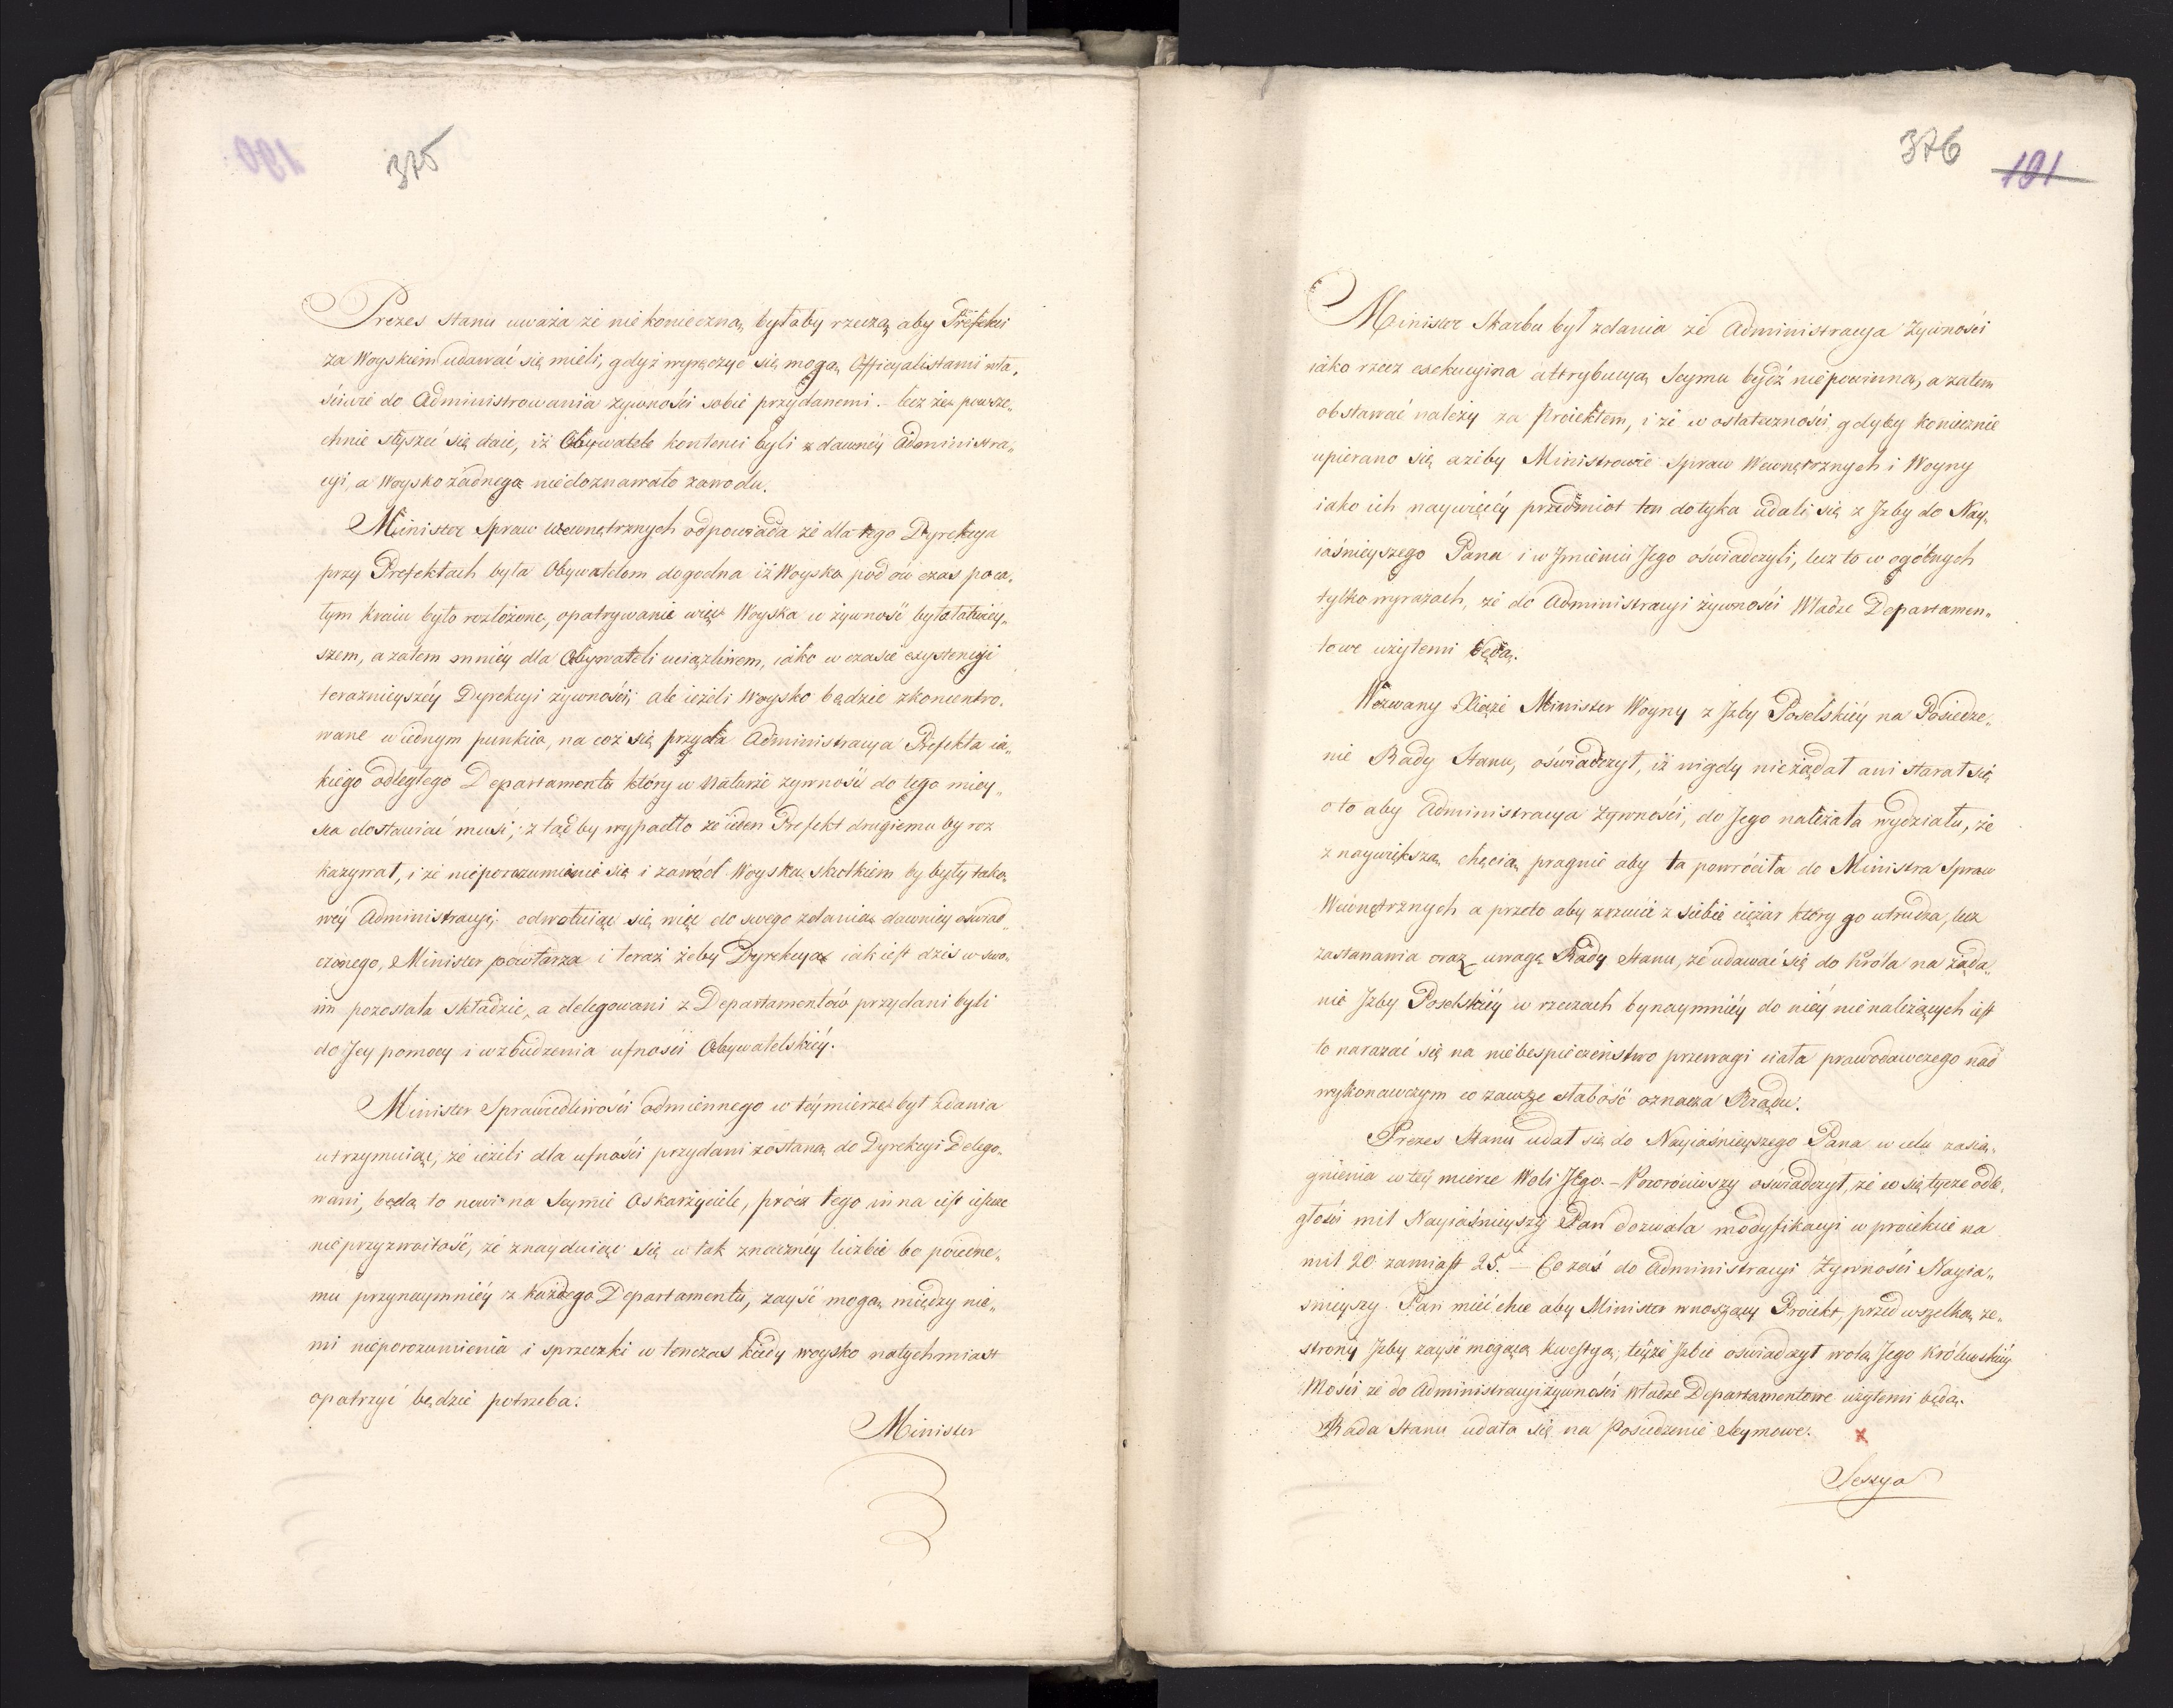 375
Prezes Stanu uważa że niekonieczną byłaby rzeczą aby Prefekci
za Woyskiem udawać się mieli, gdyż wyręczyć się mogą Officyalistami wła„
ściwie do Administrowania żywności sobie przydanemi. lecz że powsze„
chnie słyszeć się daie, iż Obywatele kontenci byli z dawnéy Administra„
cyi, a Woysko żadnego niedoznawało zawodu.
Minister Spraw Wewnętrznych odpowiada że dla tego Dyrekcya
przy Prefektach była Obywatelom dogodna iż Woysko pod ów czas po ca„
łym Kraiu było rozłożone, opatrywanie więc Woyska w żywność było łatwiey„
szem, a zatem mniéy dla Obywateli uciążliwem, iako w czasie exystencyi
teraznieyszéy Dyrekcyi żywności; ale ieżeli Woysko będzie zkoncentro„
wane w iednym punkcie, na coż się przyda Administracya Prefekta ia„
kiego odległego Departamentu który w naturze żywność do tego miey„
sca dostawiać musi; z tąd by wypadło że ieden Prefekt drugiemu by roz
kazywał, i że nieporozumienie się i zawód Woyska skutkiem by były tako„
wéy Administracyi; odwołuiąc się więc do swego zdania dawniey oświad„
czonego, Minister powtarza i teraz żeby Dyrekcya iak iest dziś w swo„
im pozostała składzie, a delegowani z Departamentów przydani byli
do Jey pomocy i wzbudzenia ufności Obywatelskiéy.
Minister Sprawiedliwości odmiennego w téy mierze był zdania
utrzymuiąc, że ieżeli dla ufności przydani zostaną do Dyrekcyi Delego„
wani, będą to nowi na Seymie Oskarżyciele, prócz tego inna iest ieszcze
nieprzyzwoitość, że znayduiąc się w tak znaczéy liczbie bo po iedne„
mu przynaymniéy z każdego Departamentu, zayść mogą między nie„
mi nieporozumienia i sprzeczki w tenczas kiedy woysko natychmiast
opatrzyć będzie potrzeba.
Minister
376
191
Minister Skarbu był zdania że Administracya Żywności
iako rzecz exekucyina attrybucyą Seymu bydź niepowinna, a zatem
obstawać należy za Proiektem, i że w ostateczności gdyby koniecznie
upierano się ażeby Ministrowie Spraw Wewnętrznych i Woyny
iako ich naywięcéy przedmiot ten dotyka udali się z Jzby do Nay„
iaśnieyszego Pana i w Jmieniu Jego oświadczyli, lecz to w ogólnych
tylko wyrazach, że do Administracyi żywności Władze Departamen„
towe użytemi będą.
Wezwany Xiąże Minister Woyny z Jzby Poselskiéy na Posiedze„
nie Rady Stanu, oświadczył, iż nigdy nieżądał ani starał się
o to aby Administracya Żywności, do Jego należała wydziału, że
z naywiększą chęcią pragnie aby ta powróciła do Ministra Spraw
Wewnętrznych a przeto aby zrzucić z siebie ciężar który go utrudza, lecz
zastanawia oraz uwagę Rady Stanu, że udawać się do Króla na żąda„
nie Jzby Poselskiéy w rzeczach bynaymniéy do niéy nienależących iest
to narażać się na niebespieczeństwo przewagi ciała prawodawczego nad
wykonawczym co zawsze słabość oznacza Rządu.
Prezes Stanu udał się do Nayiaśnieyszego Pana w celu zasią„
gnienia w téy mierze Woli Jego. – Powróciwszy oświadczył, że co się tycze odle„
głości mil Nayiaśnieyszy Pan dozwala modyfikacyi w proiekcie na
mil 20 zamiast 25. – Co zaś do Administracyi Żywności Nayia„
śnieyszy Pan mieć chce aby Minister wnoszący Proiekt, przed wszelką ze„
strony Jzby zayść mogącą kwestyą, téyże Jzbie oświadczył wolą Jego Królewskiéy
Mości że do Administracyi żywności Władze Departamentowe użytemi będą.
Rada Stanu udała się na Posiedzenie Seymowe. x
Sessya